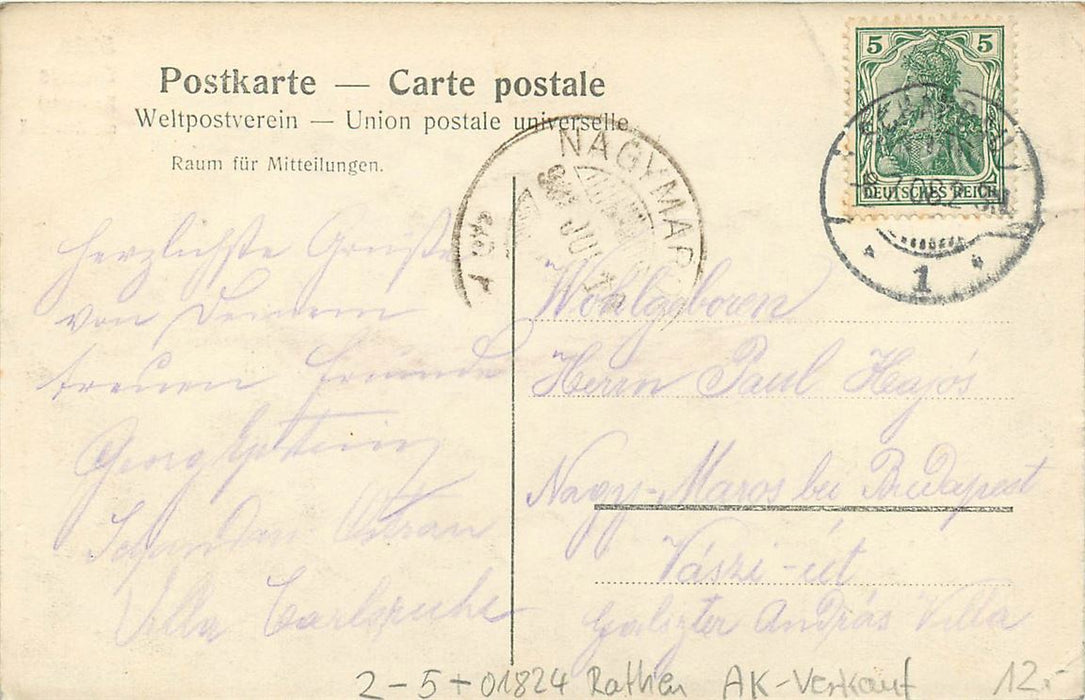 Postkarte — Carte postale
Weltpostverein — Union postale universelle
Raum für Mitteilungen.
5 5
DEUTSCHES REICH
1
NAGYMAROS
Herzlichste Grüße
von Deinem
treuen Freunde
Georg Epstein
Schandau Ostrau
Villa Carlsruhe
Wohlgeboren
Herrn Paul Hajós
Nagy-Maros bei Budapest
Vászi-út
Galszter András Villa
2-5+01824 Rathen AK-Verkauf 12.-